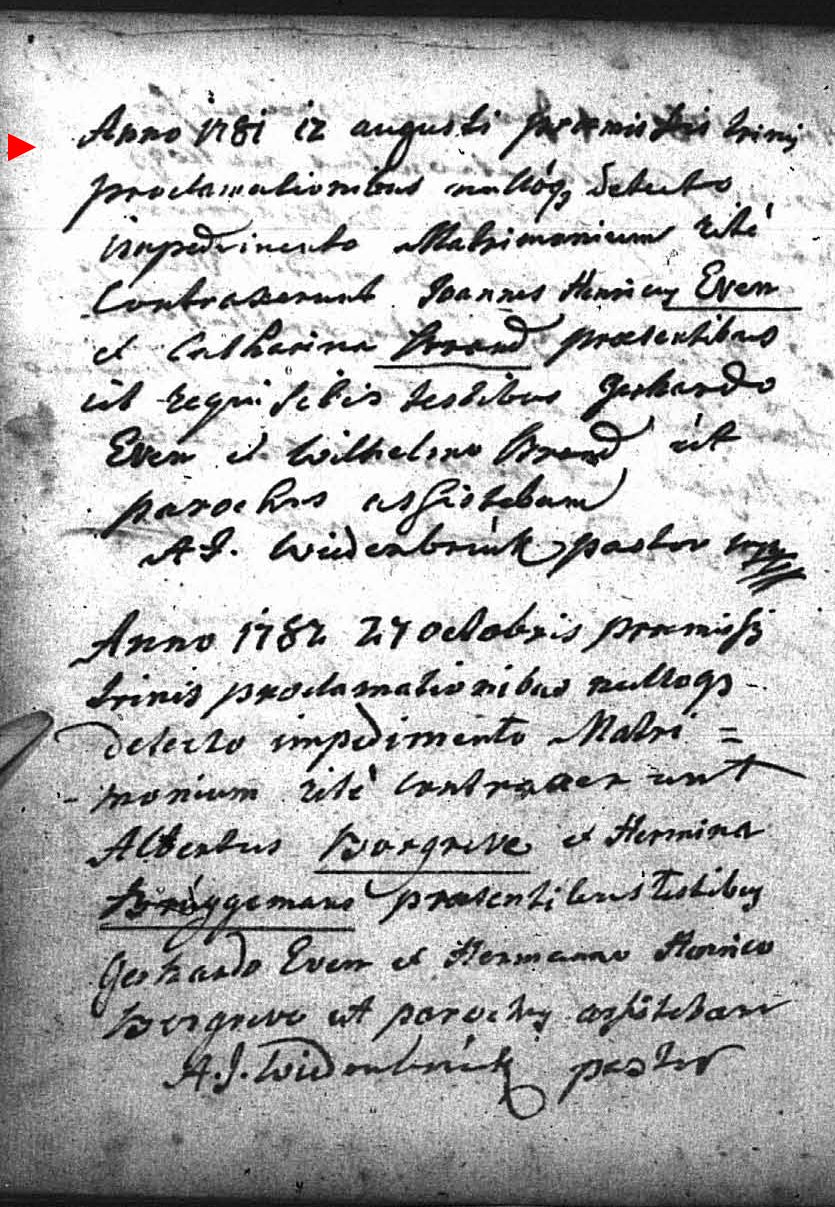 Anno 1781 12 augusti praemissis trinis
proclamationibus nullóq3 detecto
impedimento Matrimonium rité
Contraxerunt Joannes Henricus Evem
et Catharina Brand praesentibus
ut requisitis testibus Gerhardo
Evem et Wilhelmo Brand út
parochus assistebam
A J. Wiedenbrück pastor mpp
Anno 1782 27 octobris praemissis
trinis proclamationibus nulloq3
detecto impedimento Matri =
monium rité contraxerunt
Albertus Borgreve et Hermina
Brúggemans praesentibus testibus
Gerhardo Evem et Hermanno Henrico
Borgreve út parochus assistebam
A. J. Wiedenbrúck pastor